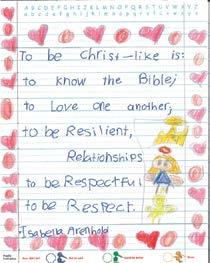 ABCDEFGHIJKLMNOPQRSTUVWXYZ
To be Christ-like is:
to know the Bible;
to Love one another,
to be Resilient,
Relationships
to be Respectful
to be Respect.
Isabella Arenhold